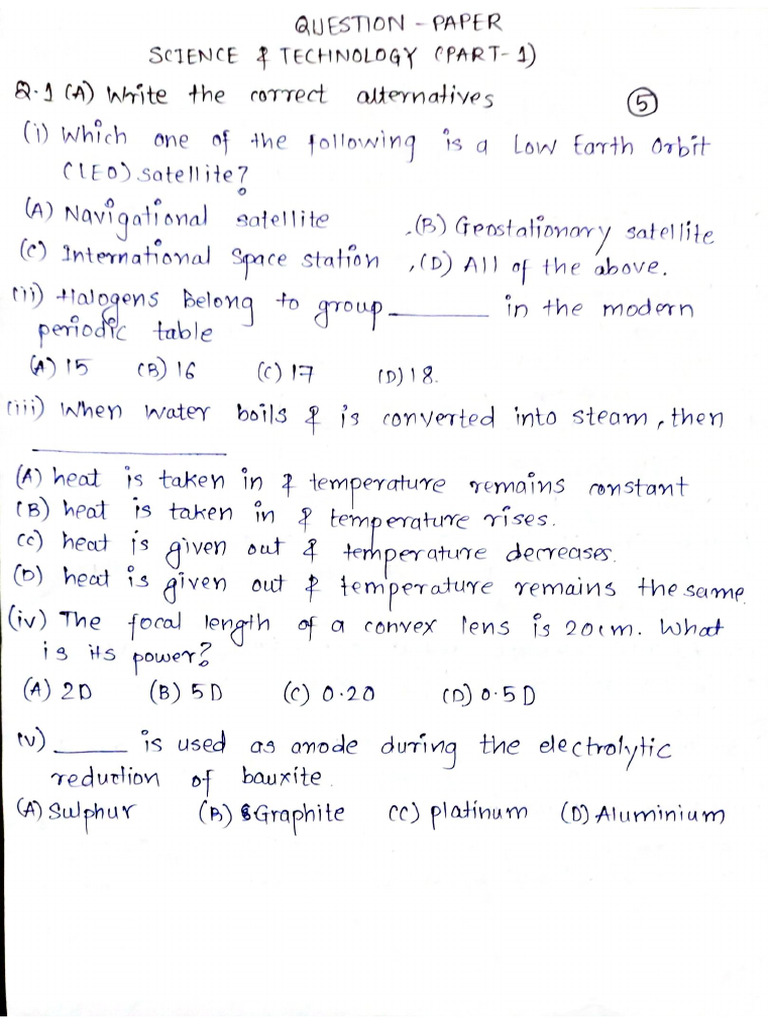 QUESTION - PAPER
SCIENCE & TECHNOLOGY (PART-1)
Q.1 (A) Write the correct alternatives (5)
(i) Which one of the following is a Low Earth Orbit
(LEO) satellite?
(A) Navigational satellite , (B) Geostationary satellite
(C) International Space station , (D) All of the above.
(ii) Halogens Belong to group ______ in the modern
periodic table
(A) 15 (B) 16 (C) 17 (D) 18.
(iii) When water boils & is converted into steam, then
____________
(A) heat is taken in & temperature remains constant
(B) heat is taken in & temperature rises.
(C) heat is given out & temperature decreases.
(D) heat is given out & temperature remains the same.
(iv) The focal length of a convex lens is 20cm. What
is its power?
(A) 2D (B) 5D (C) 0.20 (D) 0.5D
(v) ______ is used as anode during the electrolytic
reduction of bauxite.
(A) Sulphur (B) Graphite (C) platinum (D) Aluminium